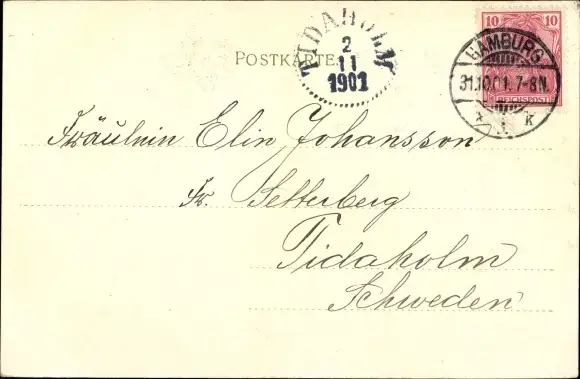 10 10
REICHSPOST
HAMBURG
31.10.01.7-8N.
* 1 K
TIDAHOLM
2
11
1901
POSTKARTE
Fräulein Elin Johansson
Fr. Setterberg
Tidaholm
Schweden